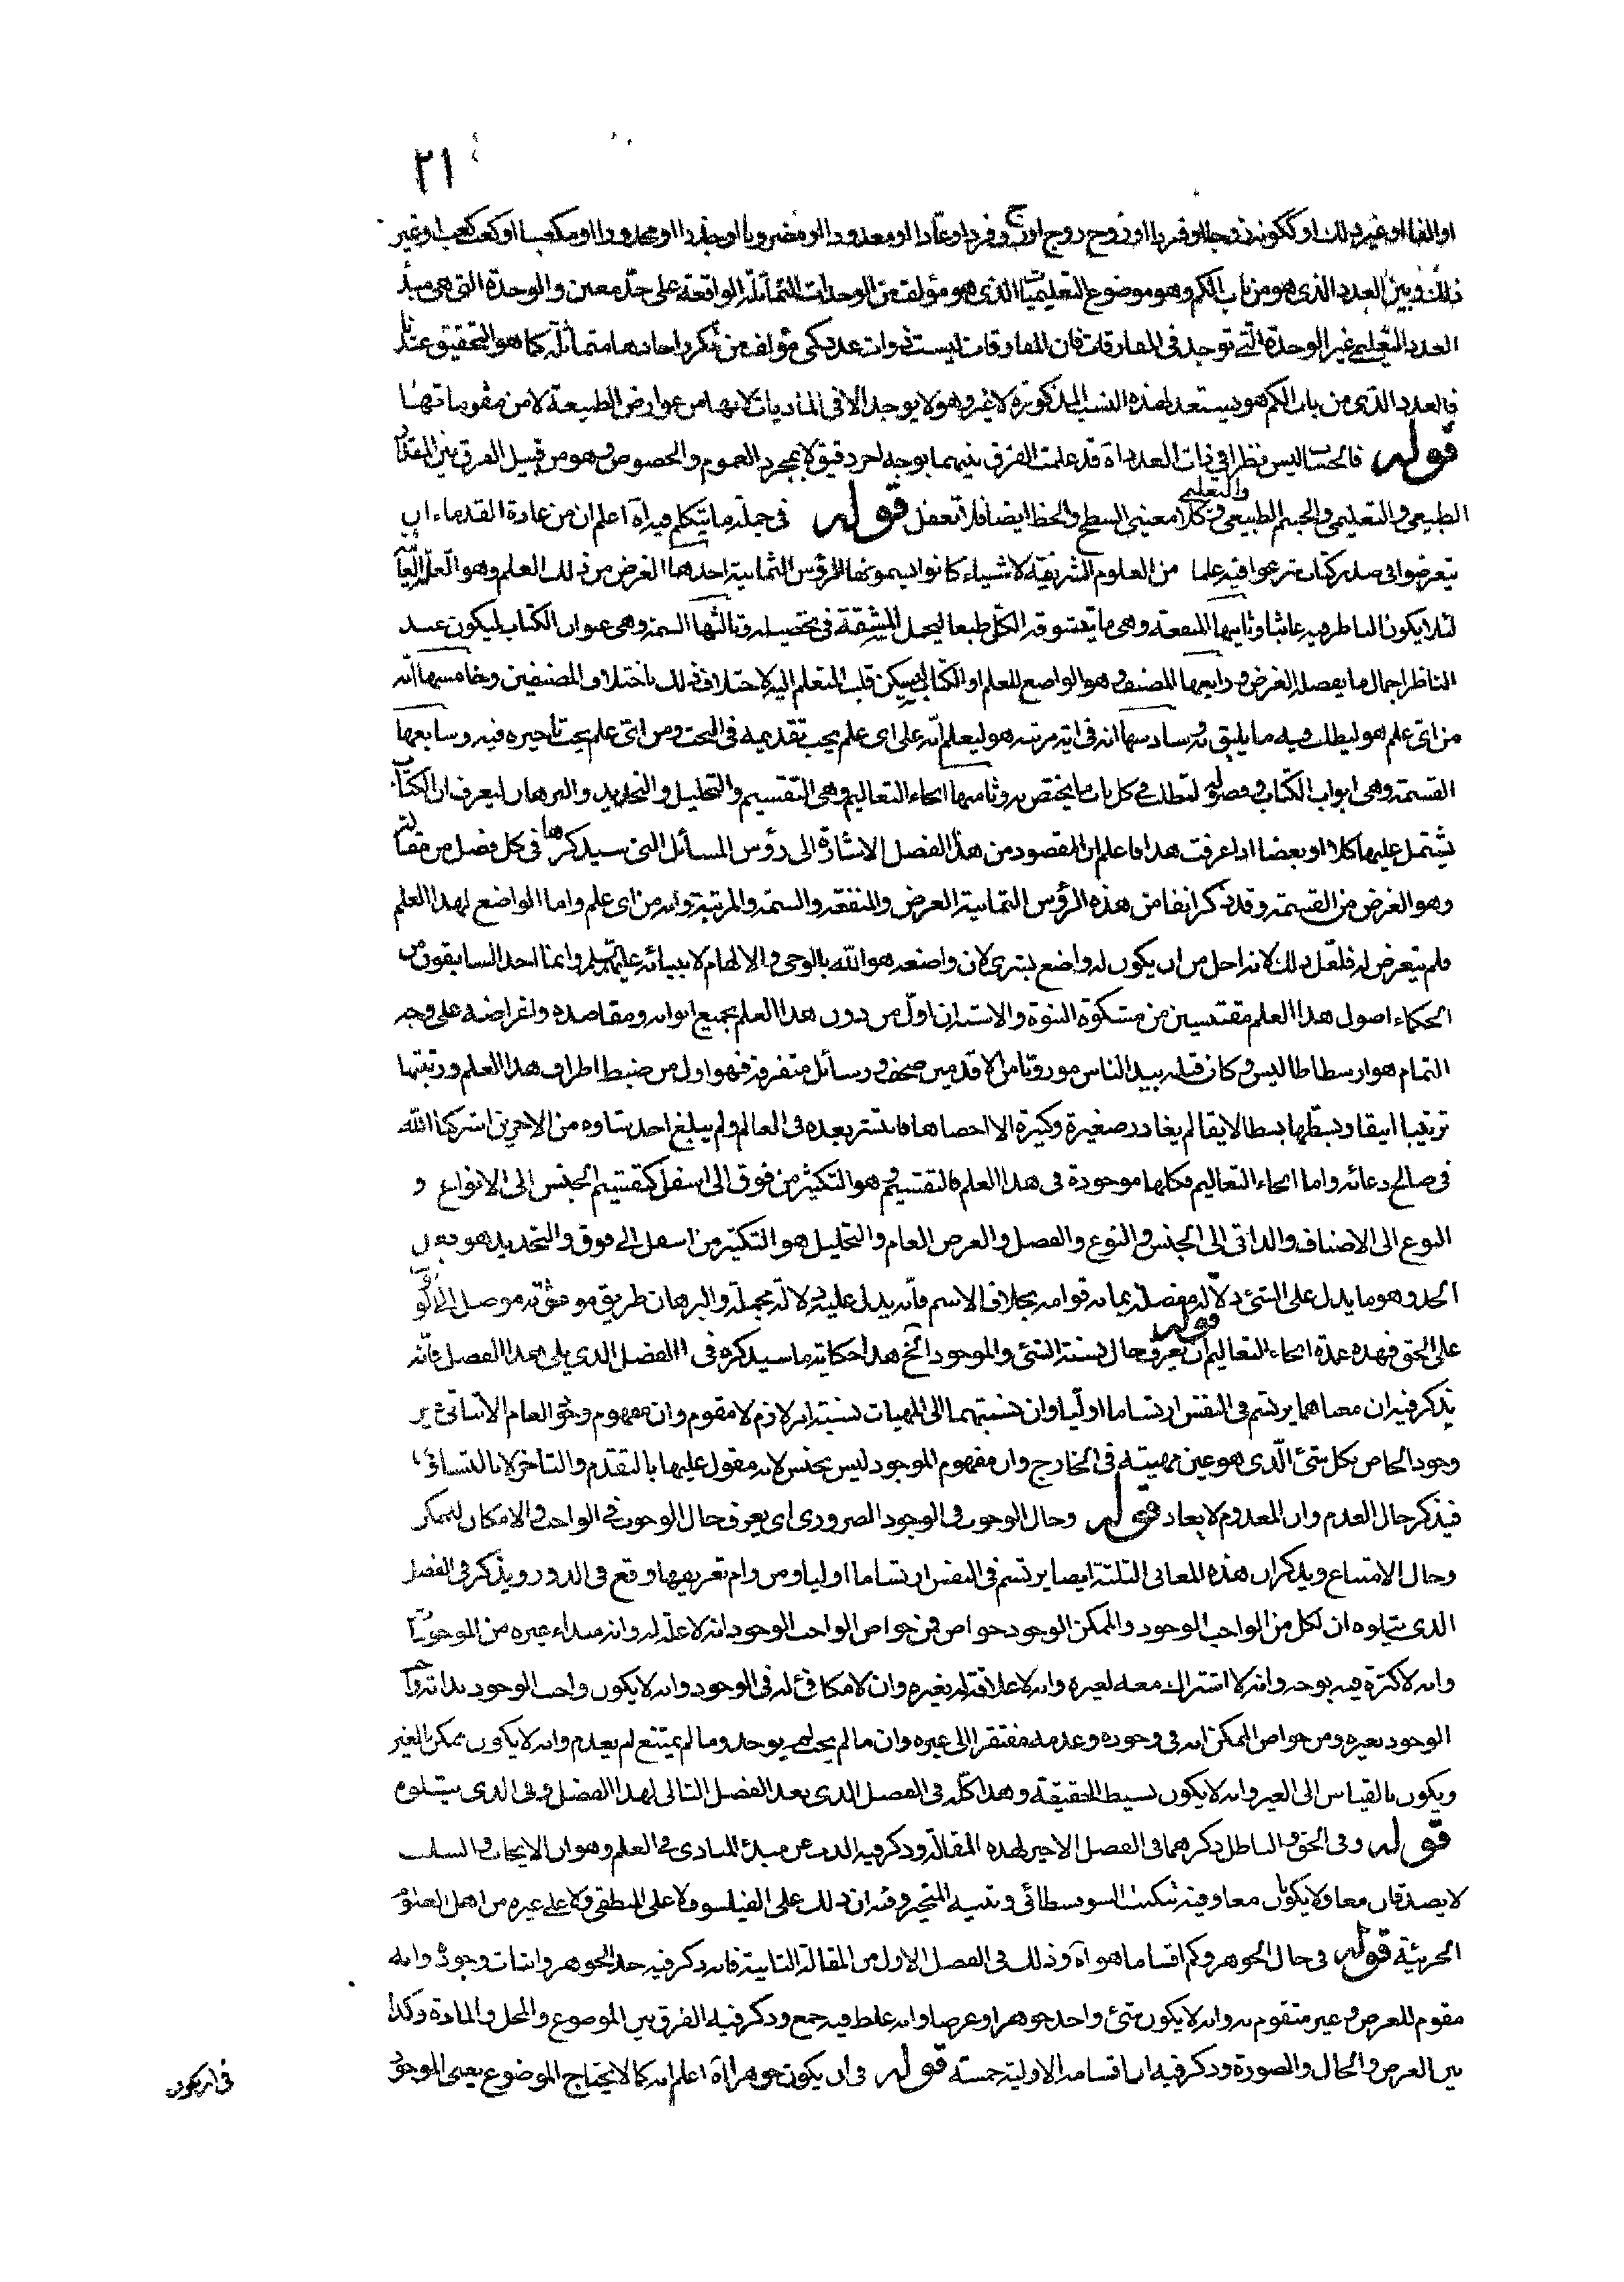 ٢١
او الفا او غير ذلك او ككونه زوجا او فردا او زوج زوج او زوج فرد او عادا او معدودا او مضروبا او جذرا او مجذورا او مكعبا او كعب كعب او غير
ذلك وبين العدد الذى هو من باب الكم وهو موضوع التعليميات الذى هو مؤلف من الوحدات المتماثلة الواقعة على حد معين والوحدة التى هى مبدأ
العدد التعليمى غير الوحدة التى توجد فى المفارقات فان المفارقات ليست ذوات عدد كمى مؤلف من تكرر احاد هما متماثلة كما هو التحقيق عندنا
فالعدد الذى من باب الكم هو يستعد لهذه النسب المذكورة لا غير وهو لا يوجد الا فى الماديات لانها من عوارض الطبيعة لا من مقوماتها
قوله فالحساب ليس نظرا فى ذات العدد اه قد علمت الفرق بينهما بوجه اخر دقيق لا بمجرد العموم والخصوص وهو من قبيل الفرق بين المقدار
الطبيعى والتعليمى والجسم الطبيعى والتعليمى وكلا معنيى السطح والخط ايضا فلا تغفل قوله فى جملة ما يتكلم فيه اه اعلم ان من عادة القدماء ان
يتعرضوا فى صدر كتاب شرعوا فيه علما من العلوم الشريفة لاشياء كانوا يسمونها الرؤس الثمانية احدها الغرض من ذلك العلم وهو العلة الغائية
لئلا يكون الناظر فيه عابثا وثانيها المنفعة وهى ما يتشوقه الكل طبعا ليحمل المشقة فى تحصيله وثالثها السمة وهى عنوان الكتاب ليكون عند
الناظر اجمال ما يفصله الغرض ورابعها المصنف وهو الواضع للعلم او الكتاب ليسكن قلب المتعلم اليه لاختلاف ذلك باختلاف المصنفين وخامسها انه
من اى علم هو ليطلب فيه ما يليق به وسادسها انه فى اية مرتبة هو ليعلم انه على اى علم يجب تقديمه فى البحث ومن اى علم يجب تاخيره فيه وسابعها
القسمة وهى ابواب الكتاب وفصوله لتطلب فى كل باب ما يختص به وثامنها انحاء التعاليم وهى التقسيم والتحليل والتحديد والبرهان ليعرف ان الكتاب
يشتمل عليها كلا او بعضا اذا عرفت هذا فاعلم ان المقصود من هذا الفصل الاشارة الى رؤس المسائل التى سيذكرها فى كل فصل من مقالته
وهو الغرض من القسمة وقد ذكر انفا من هذه الرؤس الثمانية الغرض والمنفعة والسمة والمرتبة وانه من اى علم واما الواضع لهذا العلم
فلم يتعرض له فلعل ذلك لانه اجل من ان يكون له واضع بشرى لان واضعه هو الله بالوحى والالهام لانبيائه عليهم السلم وانما اخذ السابقون من
الحكماء اصول هذا العلم مقتبسين من مشكوة النبوة والاشبه ان اول من دون هذا العلم بجميع ابوابه ومقاصده واغراضه على وجه
التمام هو ارسطاطاليس وكان قبله بيد الناس موروثا من الاقدمين صحف ورسائل متفرقة فهو اول من ضبط اطراف هذا العلم ورتبتها
ترتيبا انيقا وبسطها بسطا لايقا لم يغادر صغيرة وكبيرة الا احصاها فانتشر بعده فى العالم ولم يبلغ احد شاوه من الاخرين اشركنا الله
فى صالح دعائه واما انحاء التعاليم فكلها موجودة فى هذا العلم فالتقسيم هو التكثير من فوق الى اسفل كتقسيم الجنس الى الانواع و
النوع الى الاصناف والذاتى الى الجنس والنوع والفصل والعرض العام والتحليل هو التكثير من اسفل الى فوق والتحديد هو فعل
الحد وهو ما يدل على الشئ دلالة مفصلة بما به قوامه بخلاف الاسم فانه يدل عليه دلالة مجملة والبرهان طريق موثوق به موصل الى الوقوف
على الحق فهذه عمدة انحاء التعاليم قوله ان يعرف حال نسبة الشئ والموجود الخ هذا حكاية ما سيذكره فى الفصل الذى يلى بهذا الفصل فانه
يذكر فيه ان معناهما يرتسم فى النفس ارتساما اوليا وان نسبتهما الى المهيات نسبة امر لازم لا مقوم وان مفهوم وجود العام الاثباتى غير
وجود الخاص بكل شئ الذى هو عين مهيته فى الخارج وان مفهوم الموجود ليس بجنس لانه مقول عليها بالتقدم والتاخر لا بالتساوى
فيذكر حال العدم وان المعدوم لا يعاد قوله وحال الوجوب فى الوجود الضرورى اى يعرف حال الوجوب فى الواجب والامكان للممكن
وحال الامتناع ويذكر ان هذه المعانى الثلثة ايضا يرتسم فى النفس ارتساما اوليا ومن رام تعريفها وقع فى الدور ويذكر فى الفصل
الذى يتلوه ان لكل من الواجب الوجود والممكن الوجود خواص فمن خواص الواجب الوجود انه لا علة له وانه مبداء غيره من الموجودات
وانه لا كثرة فيه بوجه وانه لا اشتراك معه لغيره وانه لا علاقة له بغيره وان لا مكافئ له فى الوجود وانه لا يكون واجب الوجود بذاته واجب
الوجود بغيره ومن خواص الممكن انه فى وجوده وعدمه مفتقر الى غيره وان ما لم يجب لم يوجد وما لم يمتنع لم يعدم وانه لا يكون ممكن بالغير
ويكون بالقياس الى الغير وانه لا يكون بسيط الحقيقة وهذا كله فى الفصل الذى بعد الفصل التالى لهذا الفصل وفى الذى يتلوه
قوله وفى الحق والباطل ذكرهما فى الفصل الاخير لهذه المقالة وذكر فيه الذب عن مبدء المبادى فى العلم وهو ان الايجاب والسلب
لا يصدقان معا ولا يكذبان معا وفيه تبكيت السوفسطائى وتنبيه المتحير وفيه ان ذلك على الفيلسوف لا على المنطقى ولا على غيره من اهل العلوم
الجزئية قوله فى حال الجوهر وكم اقساما هو اه وذلك فى الفصل الاول من المقالة الثانية فانه ذكر فيه حد الجوهر واثبات وجوده وانه
مقوم للعرض غير متقوم به وانه لا يكون شئ واحد جوهرا وعرضا وانه غلط فيه جمع وذكر فيه الفرق بين الموضوع والمحل والمادة وكذا
بين العرض والحال والصورة وذكر فيه ان اقسامه الاولية خمسة قوله فى ان يكون جوهرا اه اعلم انه كما لا يحتاج الموضوع يعنى الموجود
فى ان يكون